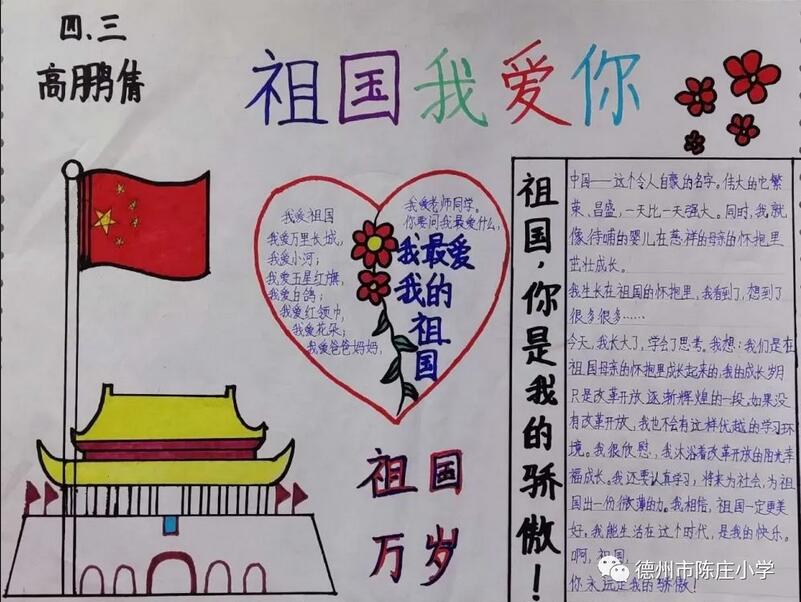 四.三
高鹏倩
祖国我爱你
我爱祖国
我爱万里长城,
我爱小河;
我爱五星红旗,
我爱白鸽;
我爱红领巾,
我爱花朵;
我爱爸爸妈妈,
我爱老师同学。
你要问我最爱什么,
我最爱
我的
祖
国
祖国
万岁
祖国,你是我的骄傲!
中国——这个令人自豪的名字。伟大的它繁
荣、昌盛,一天比一天强大。同时,我就
像待哺的婴儿在慈祥的母亲的怀抱里
茁壮成长。
我生长在祖国的怀抱里,我看到了,想到了
很多很多……
今天,我长大了,学会了思考。我想:我们是在
祖国母亲的怀抱里成长起来的,我的成长岁月
只是改革开放逐渐辉煌的一段。如果没
有改革开放,我也不会有这样优越的学习环
境。我很欣慰,我沐浴着改革开放的阳光幸
福成长。我还要认真学习,将来为社会,为祖
国出一份微薄的力。我相信,祖国一定更美
好。我能生活在这个时代,是我的快乐。
啊,祖国,
你永远是我的骄傲!
德州市陈庄小学